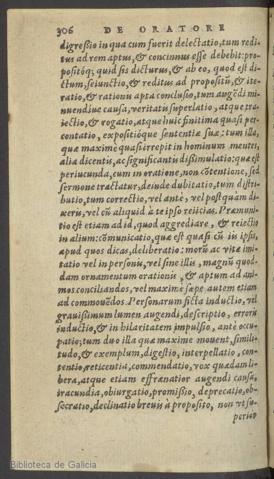 306 DE ORATORE
digreßio in qua cum fuerit delectatio, tum redi-
tus ad rem aptus, & concinnus esse debebit: pro-
positóq; quid sis dicturus, & ab eo, quod est di-
ctum, seiunctio, & reditus ad propositū, & ite-
ratio, & rationis apta conclusio, tum augēdi mi-
nuendiue causa, veritatis superlatio, atque tra-
iectio, & rogatio, atque huic finitima quasi per-
contatio, expositióque sententiæ suæ: tum illa,
quæ maximè quasi irrepit in hominum mentes,
alia dicentis, ac significantis dißimulatio: quæ est
periucunda, cum in oratione, non cōtentione, sed
sermone tractatur, deinde dubitatio, tum distri-
butio, tum correctio, vel antè, vel postquam di-
xeris, vel cū aliquid à te ipso reiicias. Præmuni-
tio est etiam ad id, quod aggrediare, & reiectio
in alium: cōmunicatio, quæ est quasi cū iis ipsis,
apud quos dicas, deliberatio: morū ac vitæ imi-
tatio vel in personis, vel sine illis, magnū quod-
dam ornamentum orationis, & aptum ad ani-
mos conciliandos, vel maximè sæpe autem etiam
ad commouēdos. Personarum ficta inductio, vel
grauißimum lumen augendi, descriptio, erroris
inductio, & in hilaritatem impulsio, antè occu-
patio; tum duo illa quæ maximè mouent, simili-
tudo, & exemplum, digestio, interpellatio, con-
tentio, reticentia, commendatio, vox quædam li-
bera, atque etiam effrænatior augendi causa,
iracundia, obiurgatio, promißio, deprecatio, ob-
secratio, declinatio breuis à proposito, non vt su-
perior
Biblioteca de Galicia